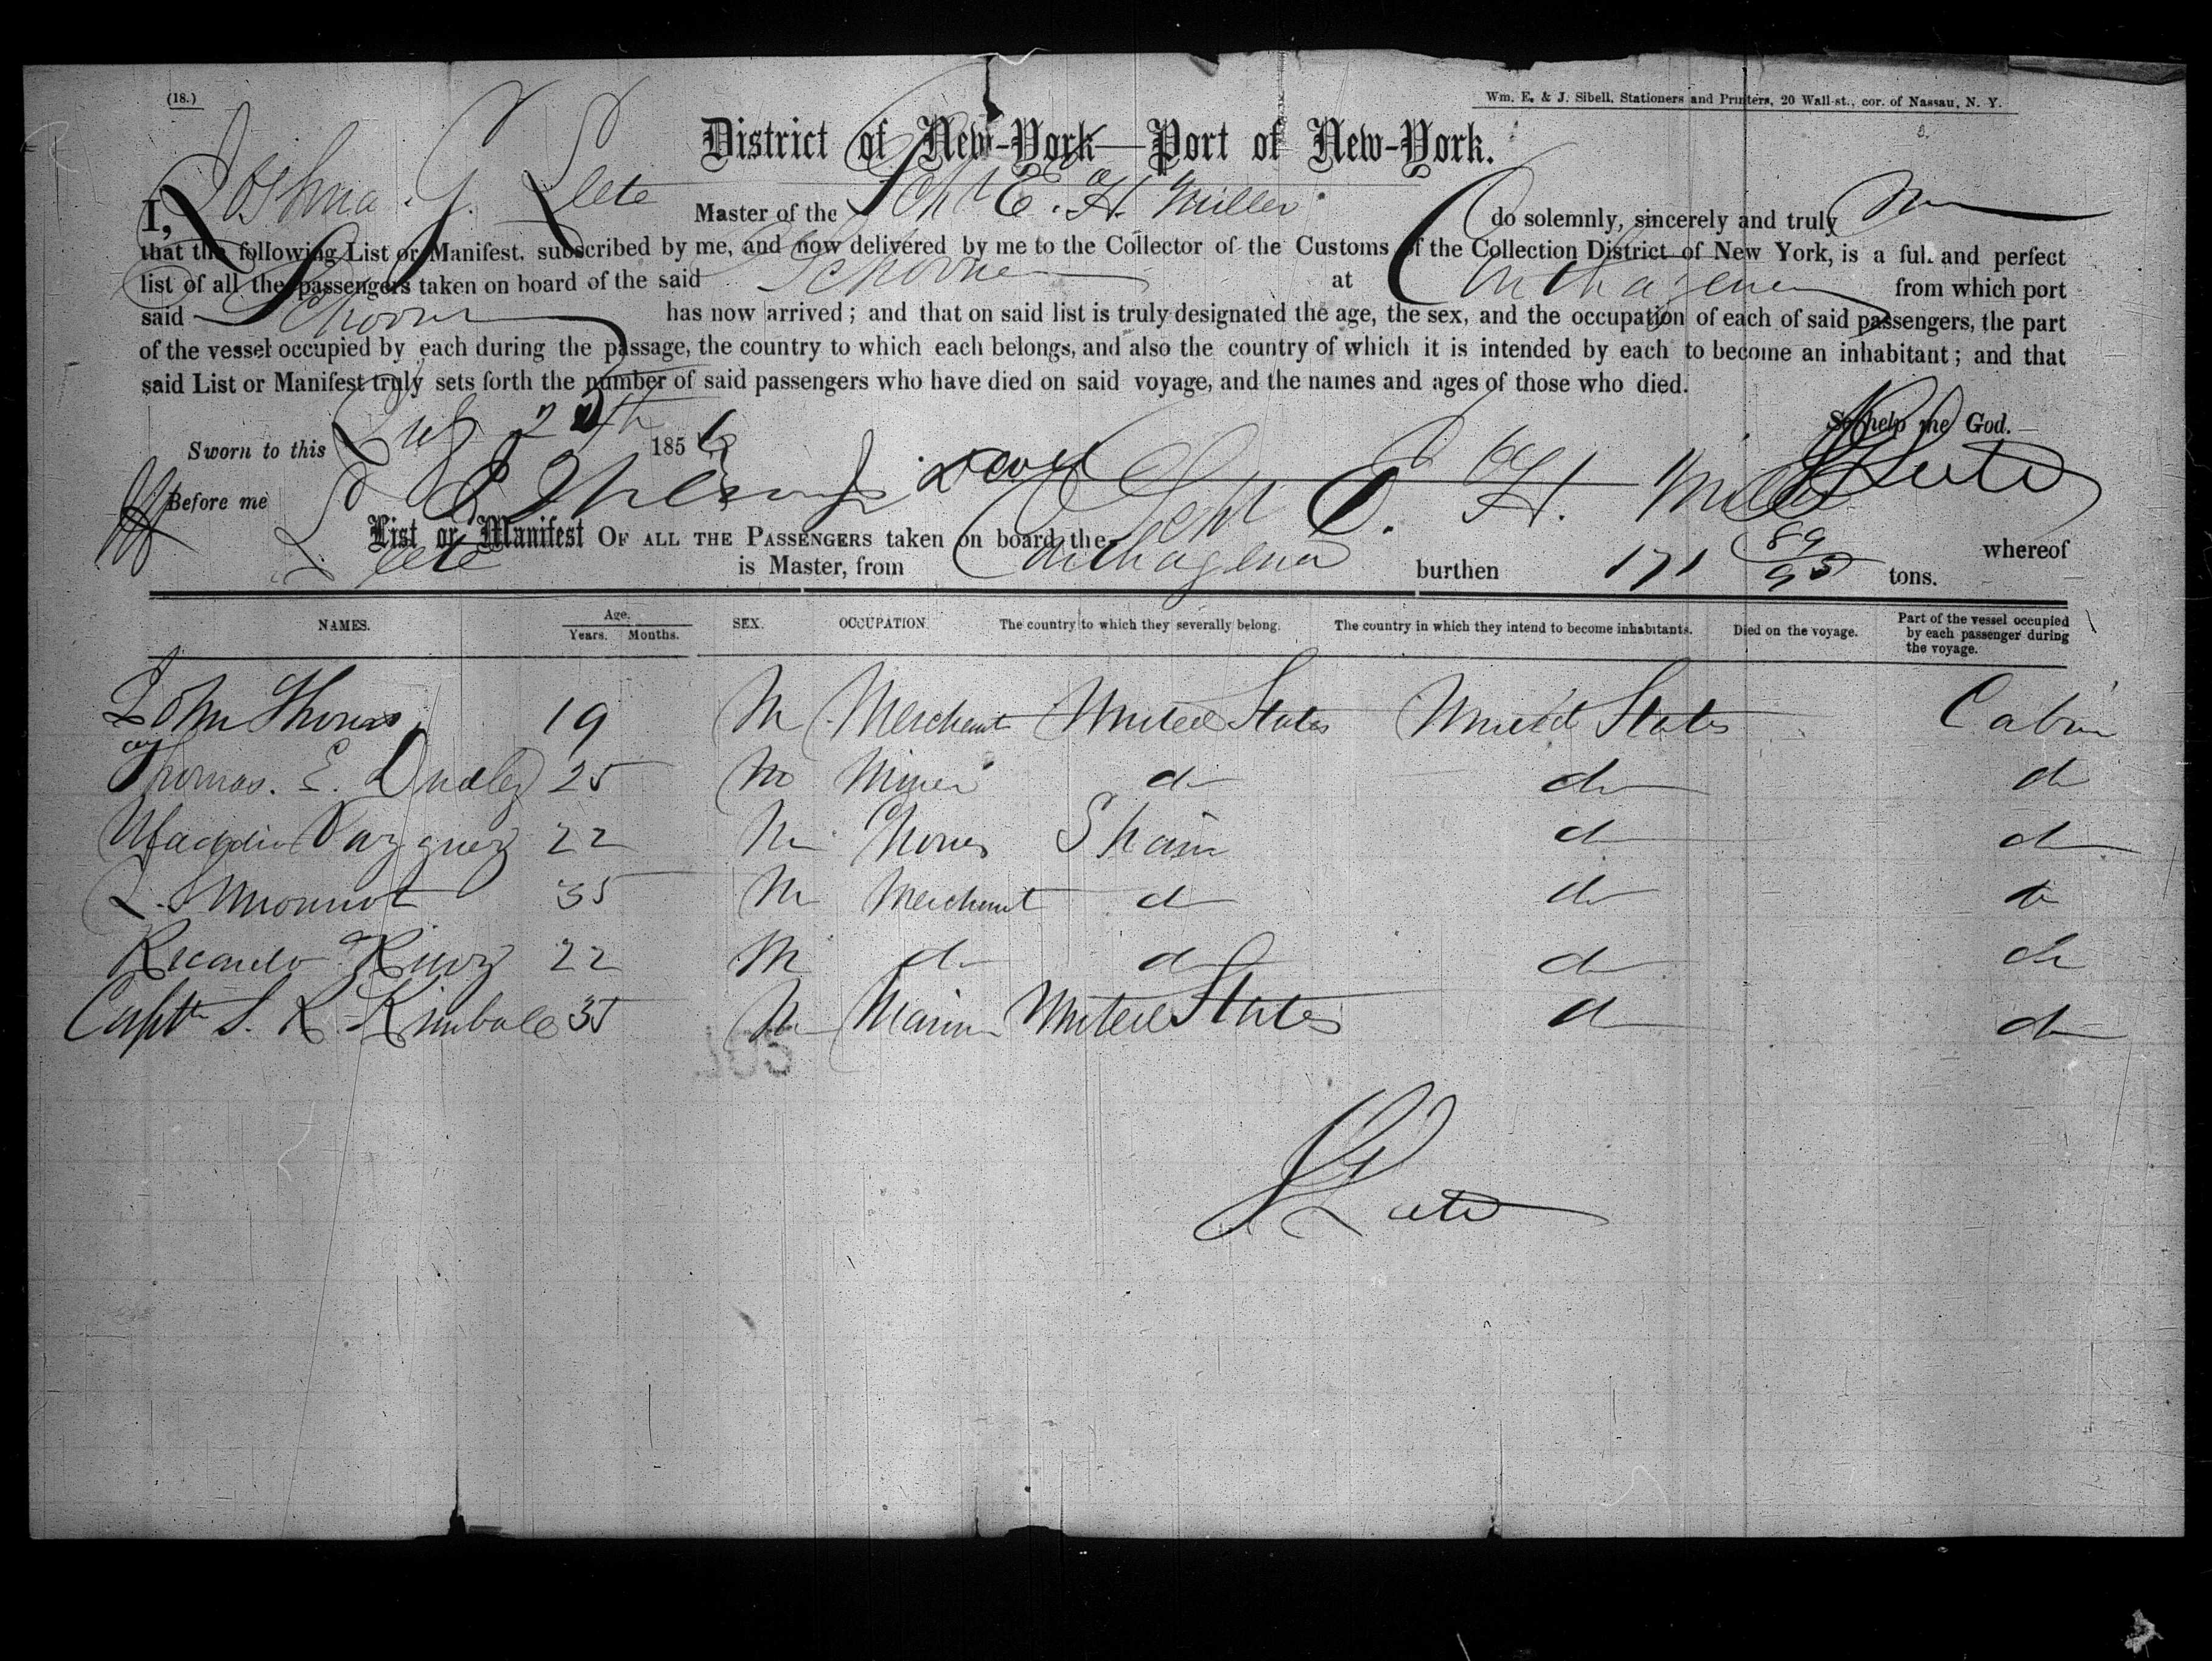 (18.)
Wm. E. & J. Sibell, Stationers and Printers, 20 Wall-st., cor. of Nassau, N. Y.
District of New-York—Port of New-York.
I, Joshua G. Leete Master of the Schr E. H. Miller do solemnly, sincerely and truly
that the following List or Manifest, subscribed by me, and now delivered by me to the Collector of the Customs of the Collection District of New York, is a full and perfect
list of all the passengers taken on board of the said Schooner at Carthagena from which port
said Schooner has now arrived; and that on said list is truly designated the age, the sex, and the occupation of each of said passengers, the part
of the vessel occupied by each during the passage, the country to which each belongs, and also the country of which it is intended by each to become an inhabitant; and that
said List or Manifest truly sets forth the number of said passengers who have died on said voyage, and the names and ages of those who died.
So help me God.
Sworn to this 1856
Before me J G Leete
List or Manifest OF ALL THE PASSENGERS taken on board the Schr E. H. Miller whereof
Leete is Master, from Carthagena burthen 171 89/95 tons.
NAMES. Age. Years. Months. SEX. OCCUPATION. The country to which they severally belong. The country in which they intend to become inhabitants. Died on the voyage. Part of the vessel occupied by each passenger during the voyage.
John Thomas 19 M Merchant United States United States Cabin
Thomas. E. Dudley 25 M Miner do do do
Vazquez 22 M None Spain do do
L. 35 M Merchant do do do
Ricardo 22 M do do do do
Captn S. R. Kimball 35 M Marine United States do do
J G Leete